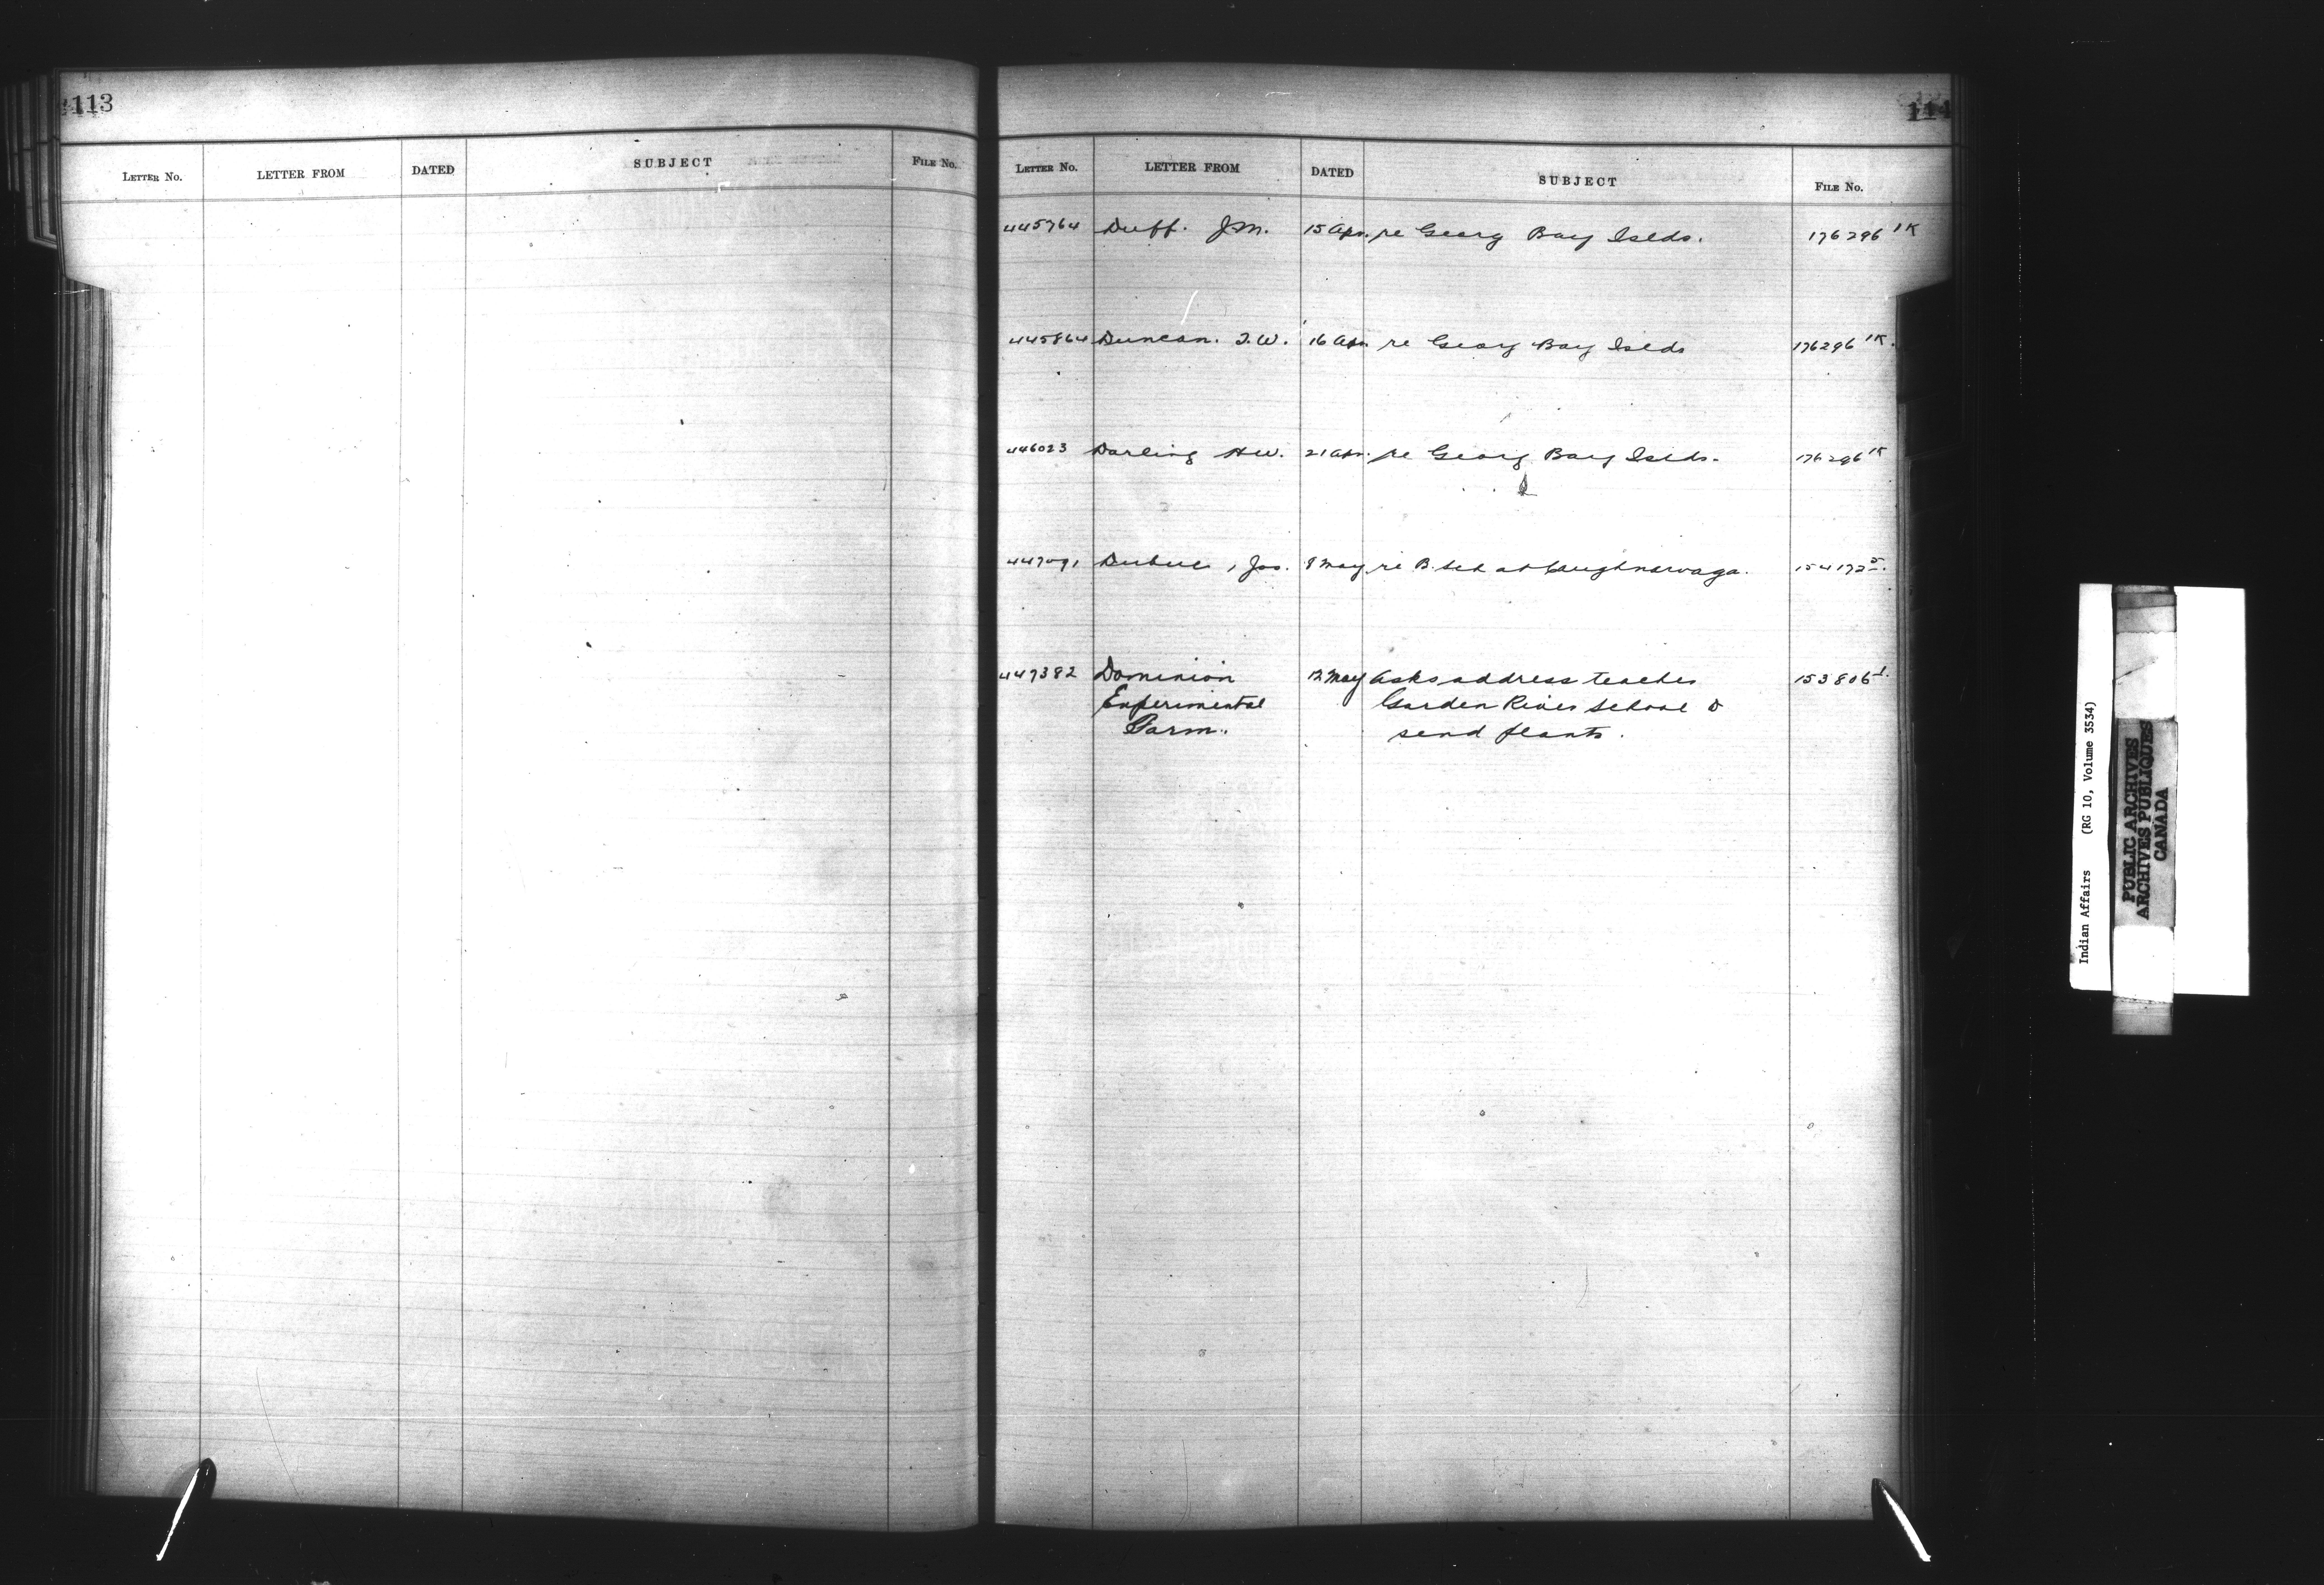 113
LETTER NO. LETTER FROM DATED SUBJECT FILE No.
114
LETTER No. LETTER FROM DATED SUBJECT FILE No.
445764 Duff. J.M. 15 Apr. re Georg Bay Islds. 176296 1K
445864 Duncan. J.W. 16 Apr. re Georg Bay Islds 176296 1K.
446023 Darling H.W. 21 Apr. re Georg Bay Islds. 176296 1K
447091 Dubuc, Jos. 8 May re B. Sch at Caughnawaga. 154172 5.
447382 Dominion 12 May Asks address teacher 153806 1.
Experimental Garden River School &
Farm. send plants.
Indian Affairs (RG 10, Volume 3534)
PUBLIC ARCHIVES
ARCHIVES PUBLIQUES
CANADA